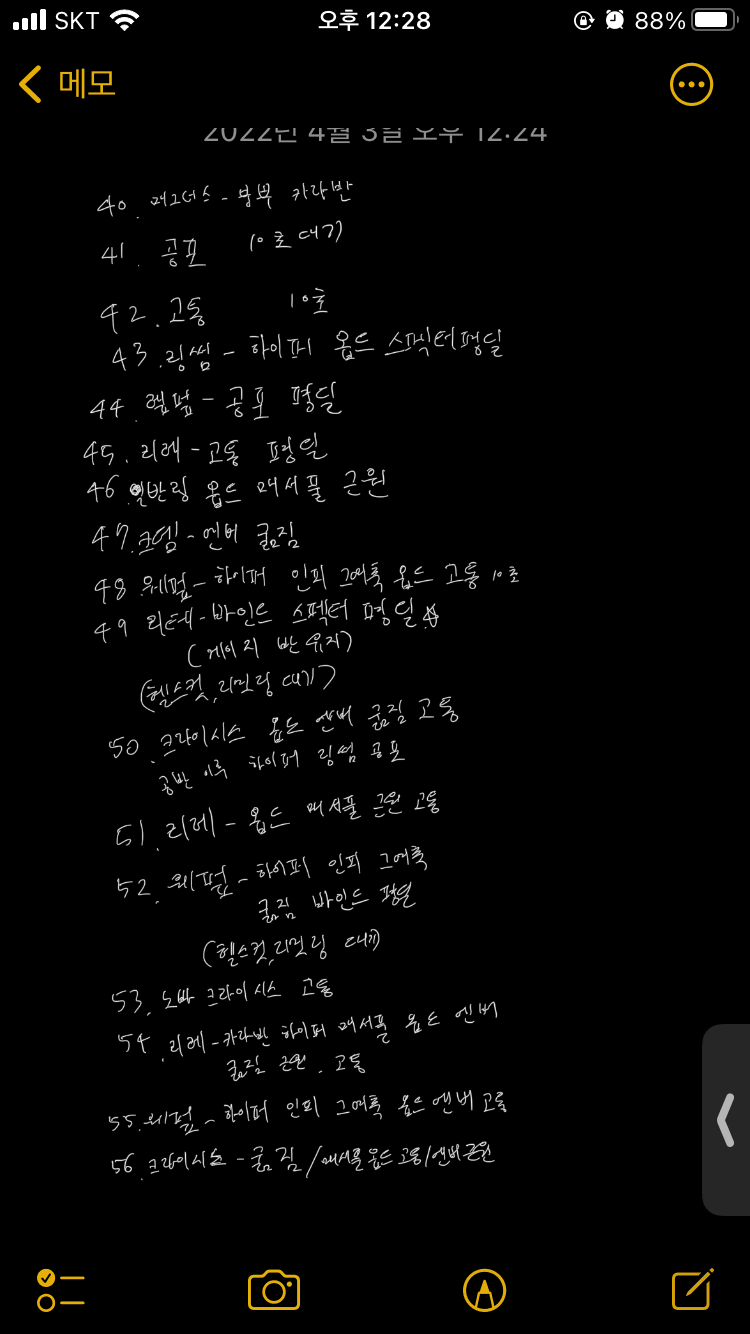 SKT 오후 12:28 88%
메모
2022년 4월 3일 오후 12:24
40. 매그너스 - 부복 카라반
41. 공포 10초 대기
42. 고통 10초
43. 링썸 - 하이퍼 옵드 스펙터평딜
44. 웹펖 - 공포 평딜
45. 리레 - 고통 평일
46. 일반링 옵드 매서풀 근원
47. 크뎀 - 엔버 굶짐
48. 웨펖 - 하이퍼 인피 그여축 옵드 고통 10초
49 리테 - 바인드 스펙터 평일
(게이지 반 유지)
(헬스컷, 리밋링 대기)
50. 크라이시스 옵드 엔버 굶짐 고통
공반 이후 하이퍼 링썸 공포
51. 리레 - 옵드 매서풀 근원 고통
52. 웨펖 - 하이퍼 인피 그여축
굶짐 바인드 평일
(헬스컷, 리밋링 대기)
53. 노바 크라이시스 고통
54. 리레 - 카라반 하이퍼 매서풀 옵드 엔버
굶짐 근원. 고통
55. 웨펖 - 하이퍼 인피 그여축 옵드 엔버 고통
56. 크라이시스 - 굶짐 / 매서풀 옵드 고통 / 엔버 근원